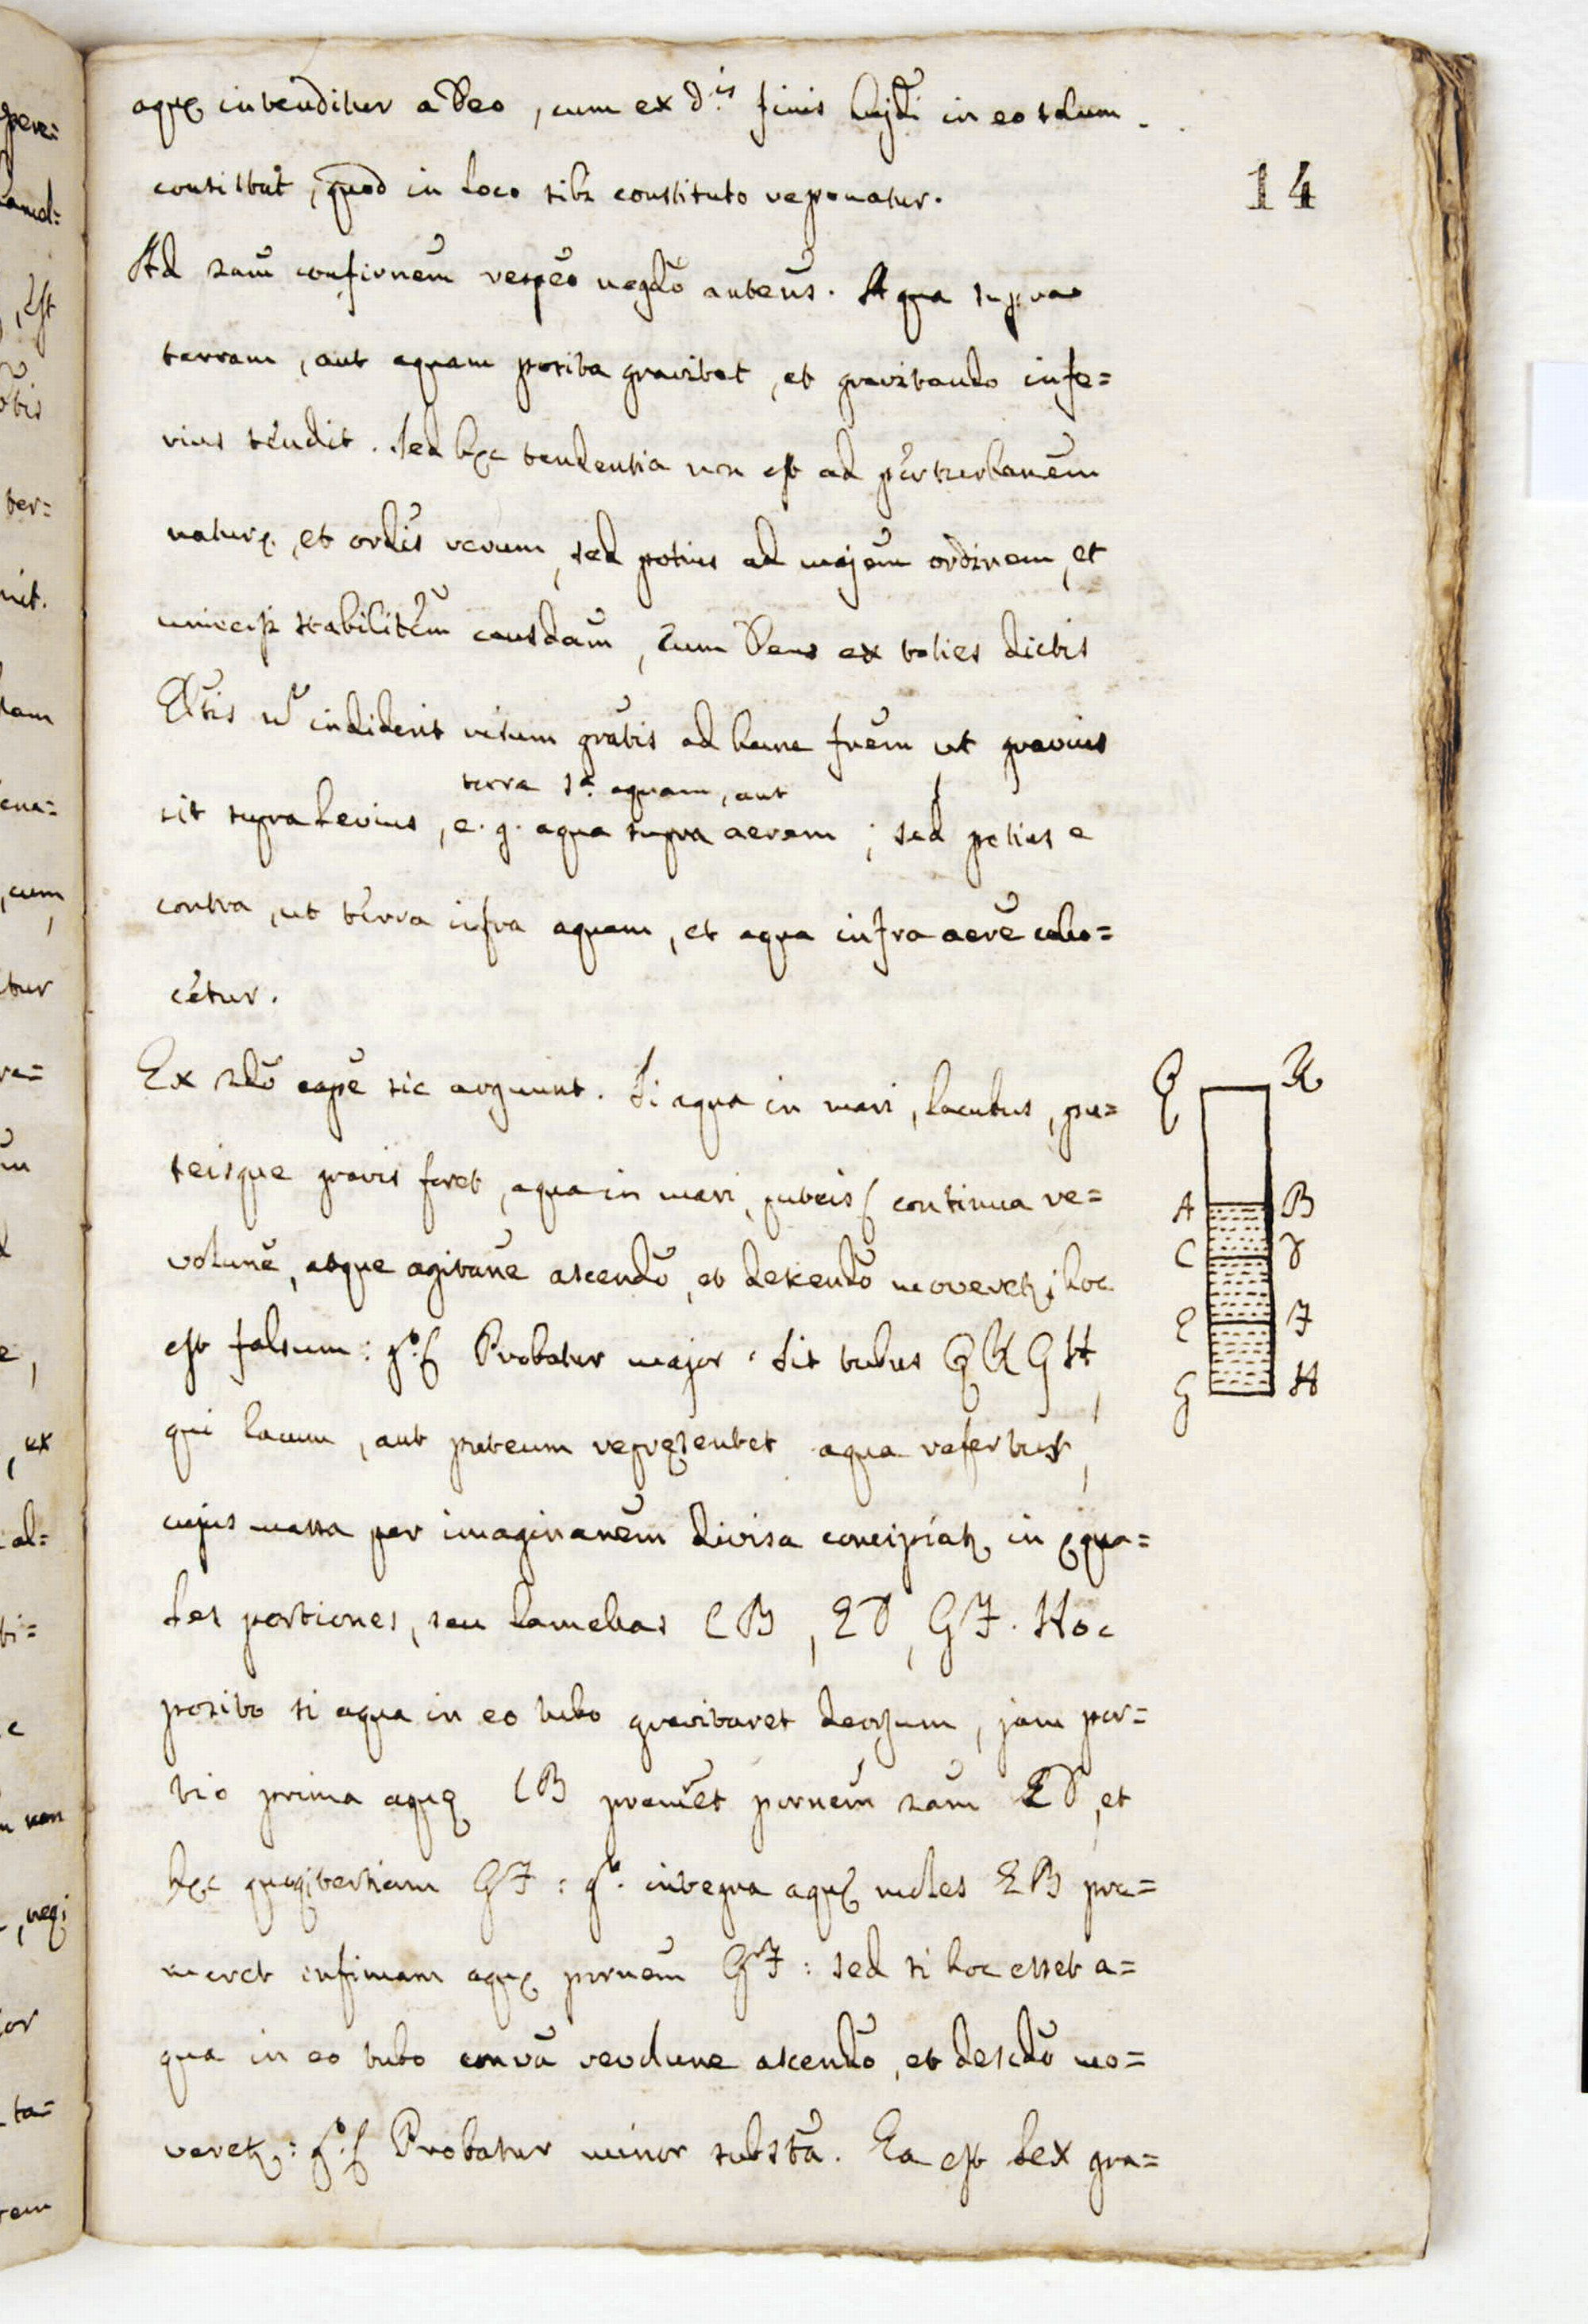 aquę intenditur a Deo, cum ex d.is finis hujdi in eo solum
consistat, quod in loco sibi constituto reponatur.
14
Ad 2am confirnem respeo negdo antens. Aqua supra
terram, aut aquam posita gravitat, et gravitando infe=
rius tendit. Sed hęc tendentia non est ad perturbanem
naturę, et ordis rerum, sed potius ad majem ordinem, et
stabilitem eorumdam, cum Deus ex toties dictis
indiderit visum gratis ad hunc fnem ut gravius
terra sa. aquam, aut
sit supra levius, e. g. aqua supra aerem; sed potius e
contra, ut terra infra aquam, et aqua infra aere collo=
cetur.
Ex 2do cape sic arguunt. Si aqua in mari, lacubus, pu=
teisque gravis foret, aqua in mari, puteis continua re=
volune, atque agitane ascendo, et descendo moveretur; hoc
est falsum: go. Probatur major. Sit tubus QKGH,
qui lacum, aut puteum repręsentet aqua refertus,
cujus massa per imaginanem divisa concipiatur in ęqua=
les portiones, seu lamellas CB, ED, GF. Hoc
posito si aqua in eo tubo gravitaret deorsum, jam por=
tio prima aquę CB premet pornem 2am ED, et
hęc tertiam GF: go. integra aquę moles EB pre=
meret infimam aquę pornem GF: sed si hoc esset a=
qua in eo tubo conua revolune ascendo, et descdo mo=
veretur: go. Probatur minor substa. Ea est lex gra=
Q K
A B
C D
E F
G H